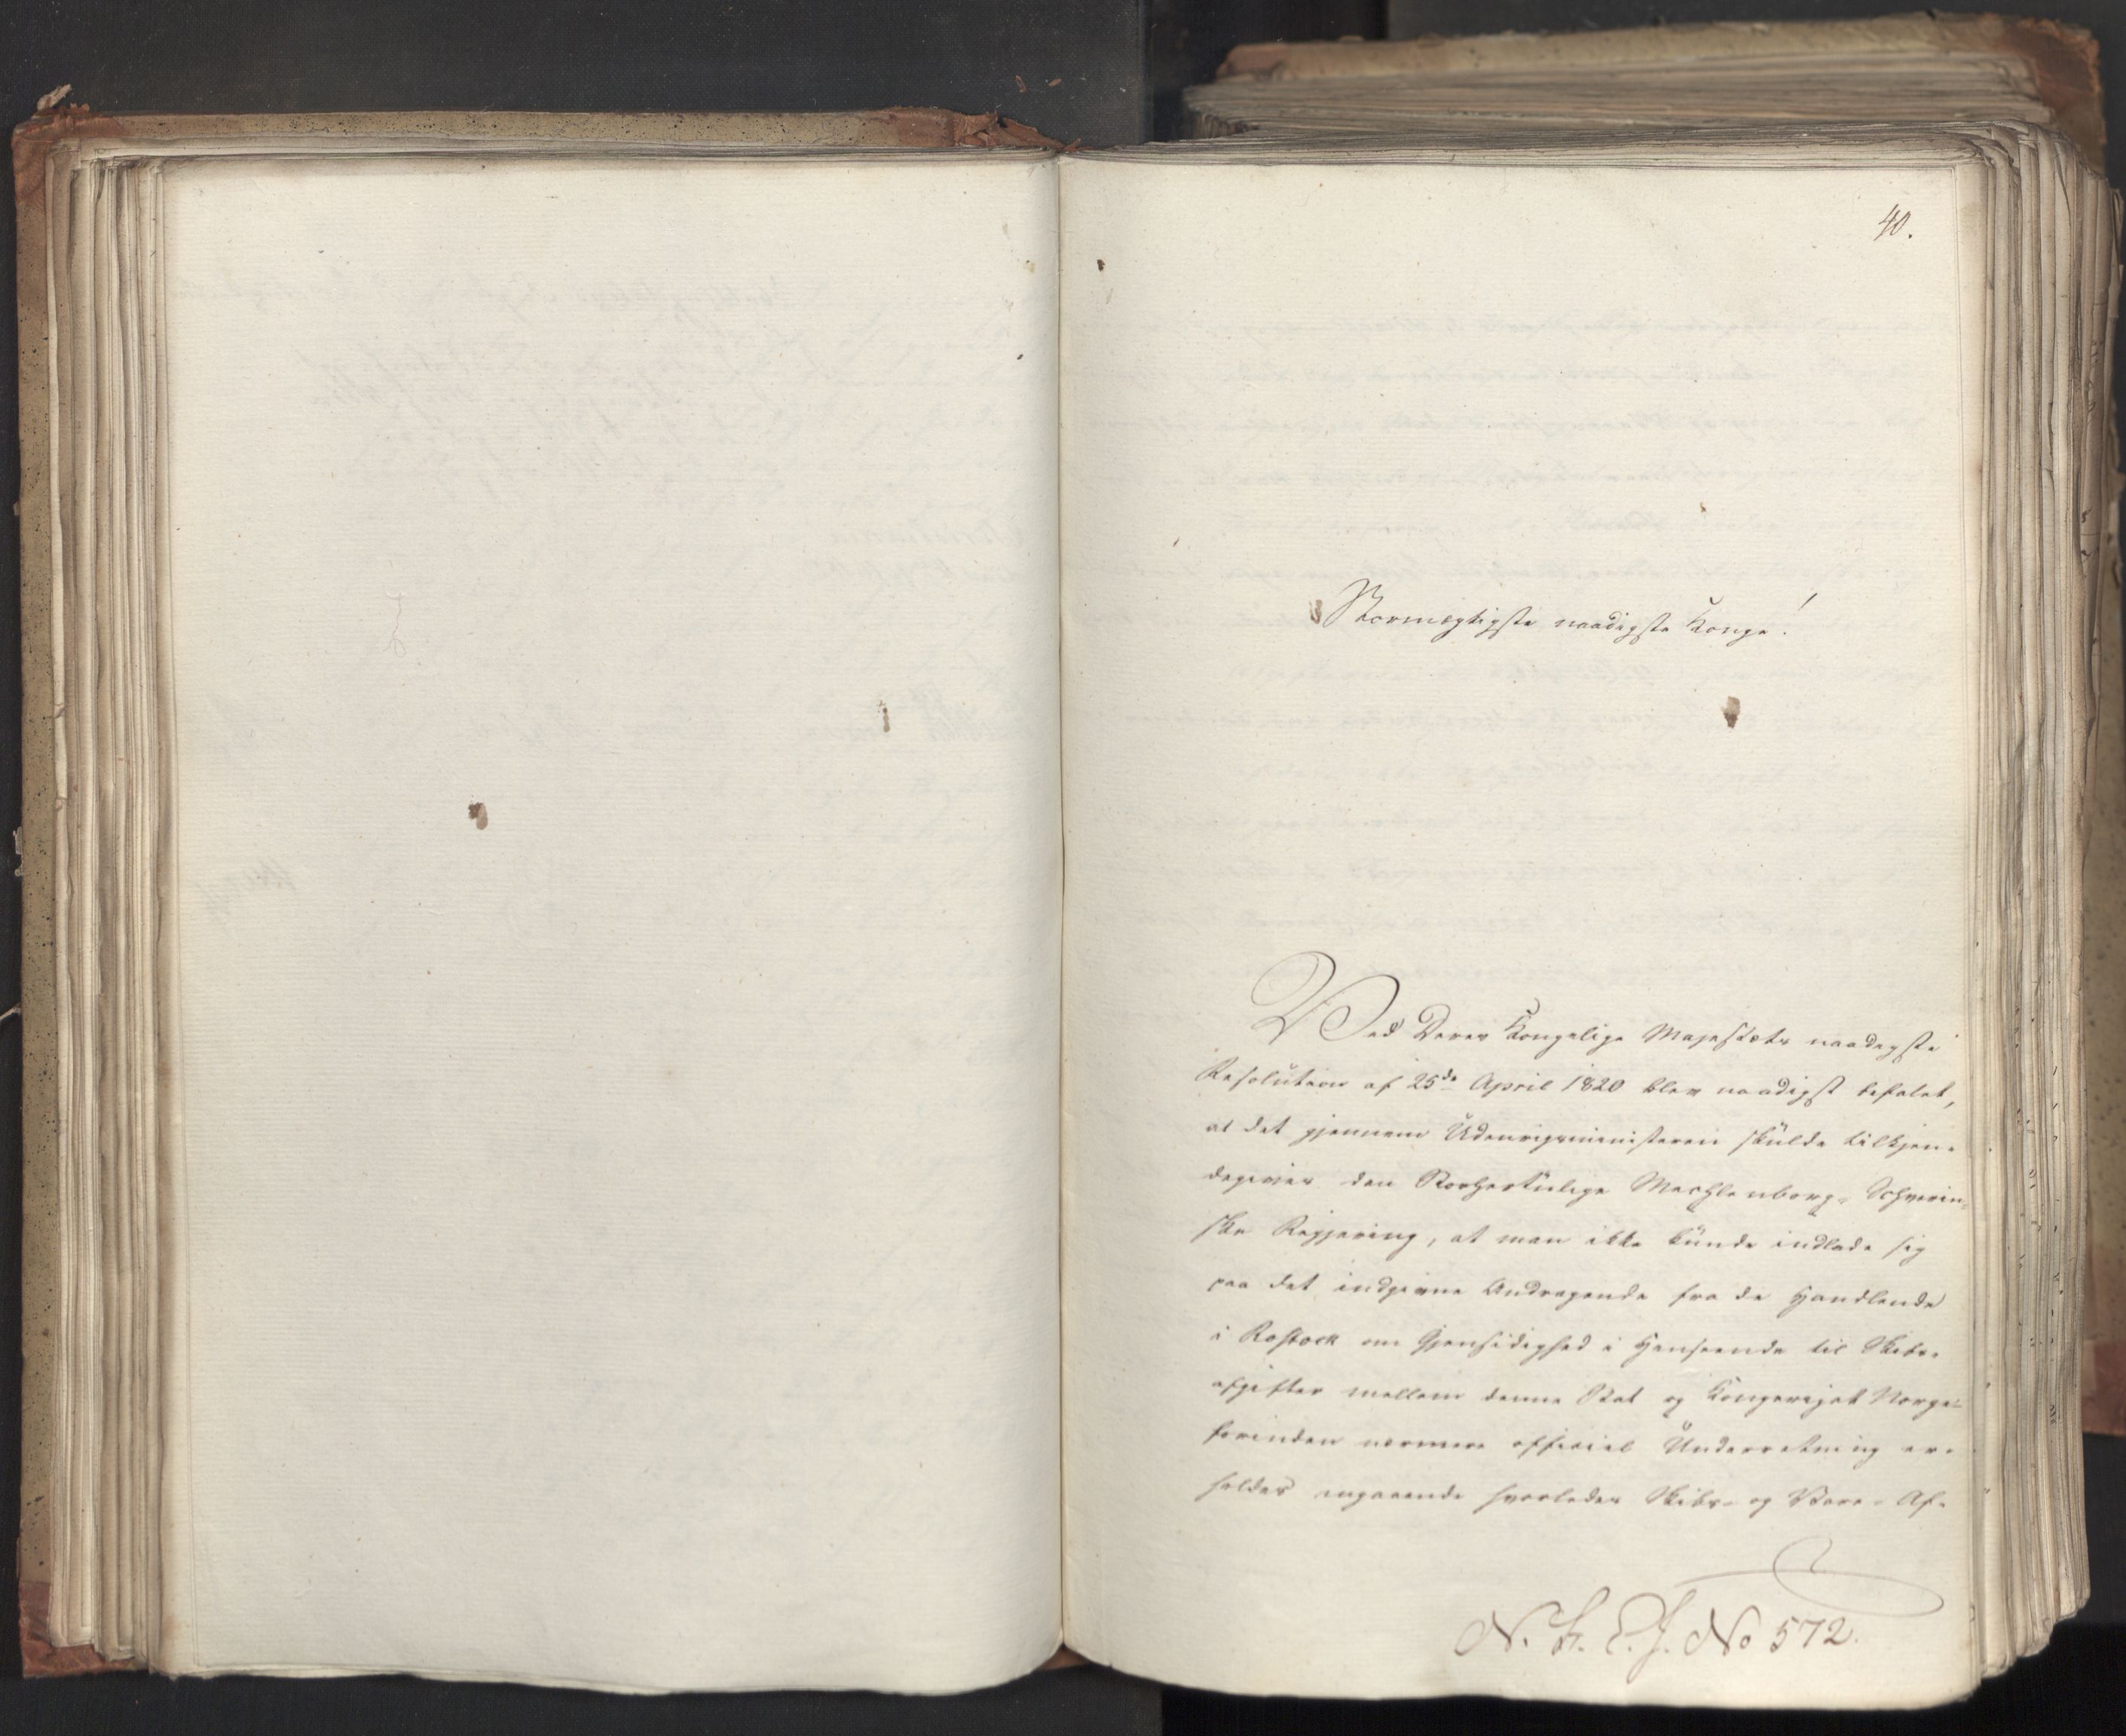 40.
Stormægtigste naadigste Konge!
Ved Deres Kongelige Majestæts naadigste
Resolution af 25de April 1820 blev naadigst befalet,
at det gjennem Udenrigsministeren skulde tilkjen-
degives den Storhertulige Mechlenborg-Schverin-
ske Regjering, at man ikke kunde indlade sig
paa det indgivne Andragende fra de Handlende
i Rostock om Gjensidighed i Henseende til Skibs-
afgifter mellem denne Stat og Kongeriget Norge
forinden nærmere officiel Underretning er-
holdes angaaende hvorledes Skibs- og Vare-Af-
N. F. E. J. No 572.